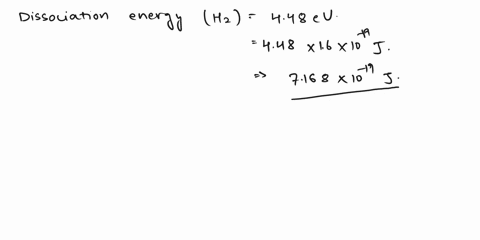 Dissociation energy (H₂) = 4.48 eV.
= 4.48 × 1.6 × 10⁻¹⁹ J.
=> 7.168 × 10⁻¹⁹ J.